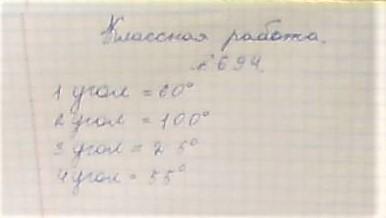 Классная работа.
№694.
1 угол = 60°
2 угол = 100°
3 угол = 25°
4 угол = 55°